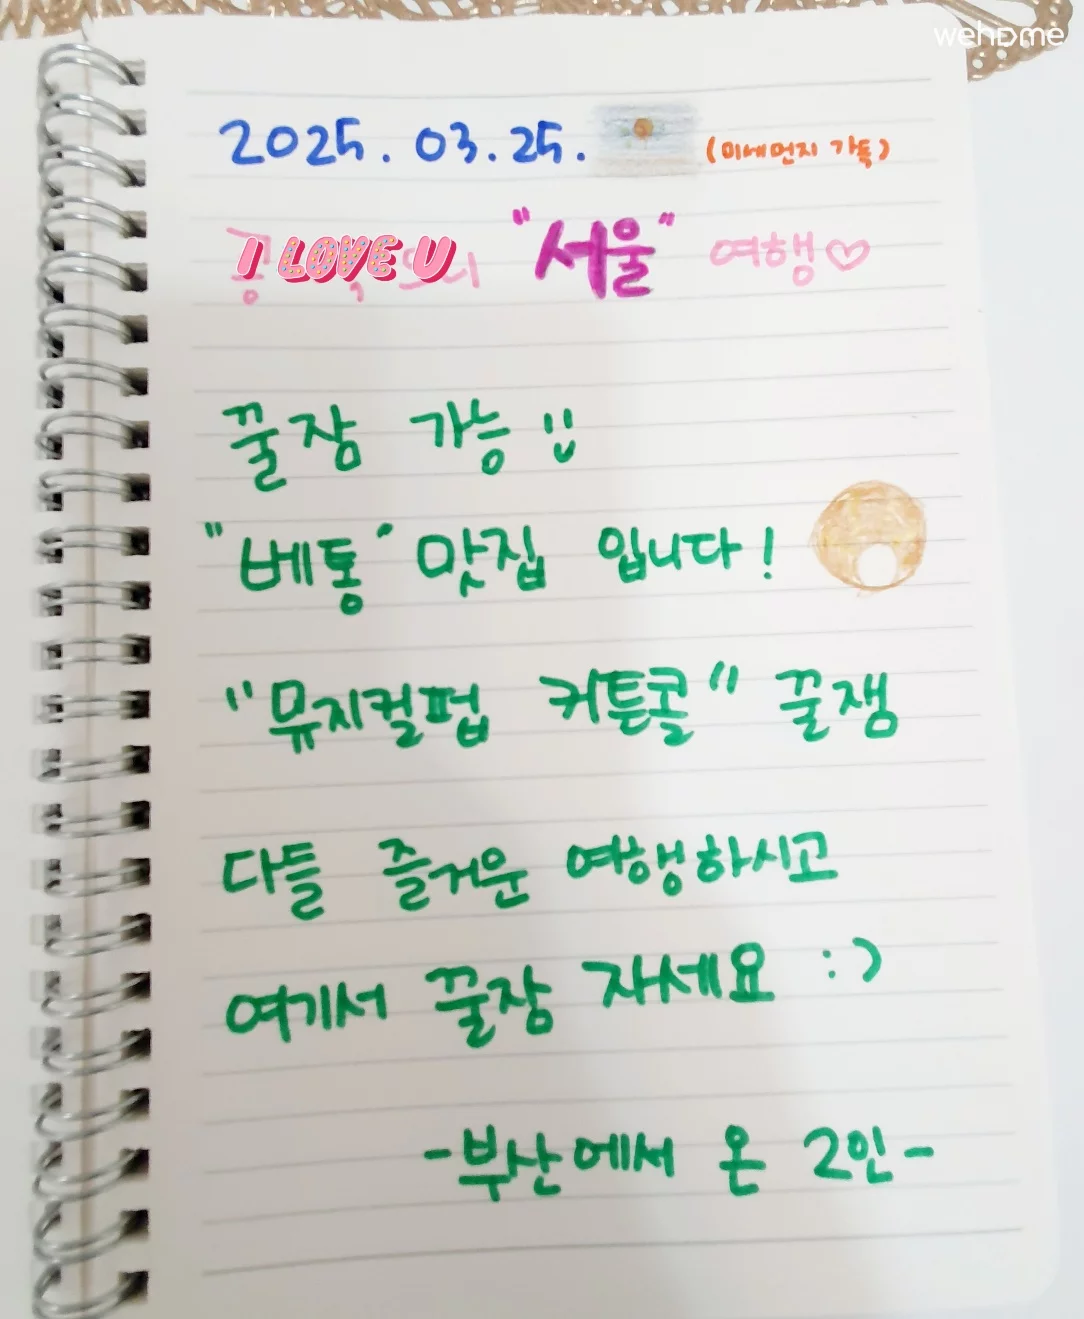 wehome
2025. 03. 25. (미세먼지 가득)
I LOVE U "서울" 여행♡
꿀잠 가능 !!
"베통" 맛집 입니다!
"뮤지컬펍 커튼콜" 꿀잼
다들 즐거운 여행하시고
여기서 꿀잠 자세요 :)
-부산에서 온 2인-